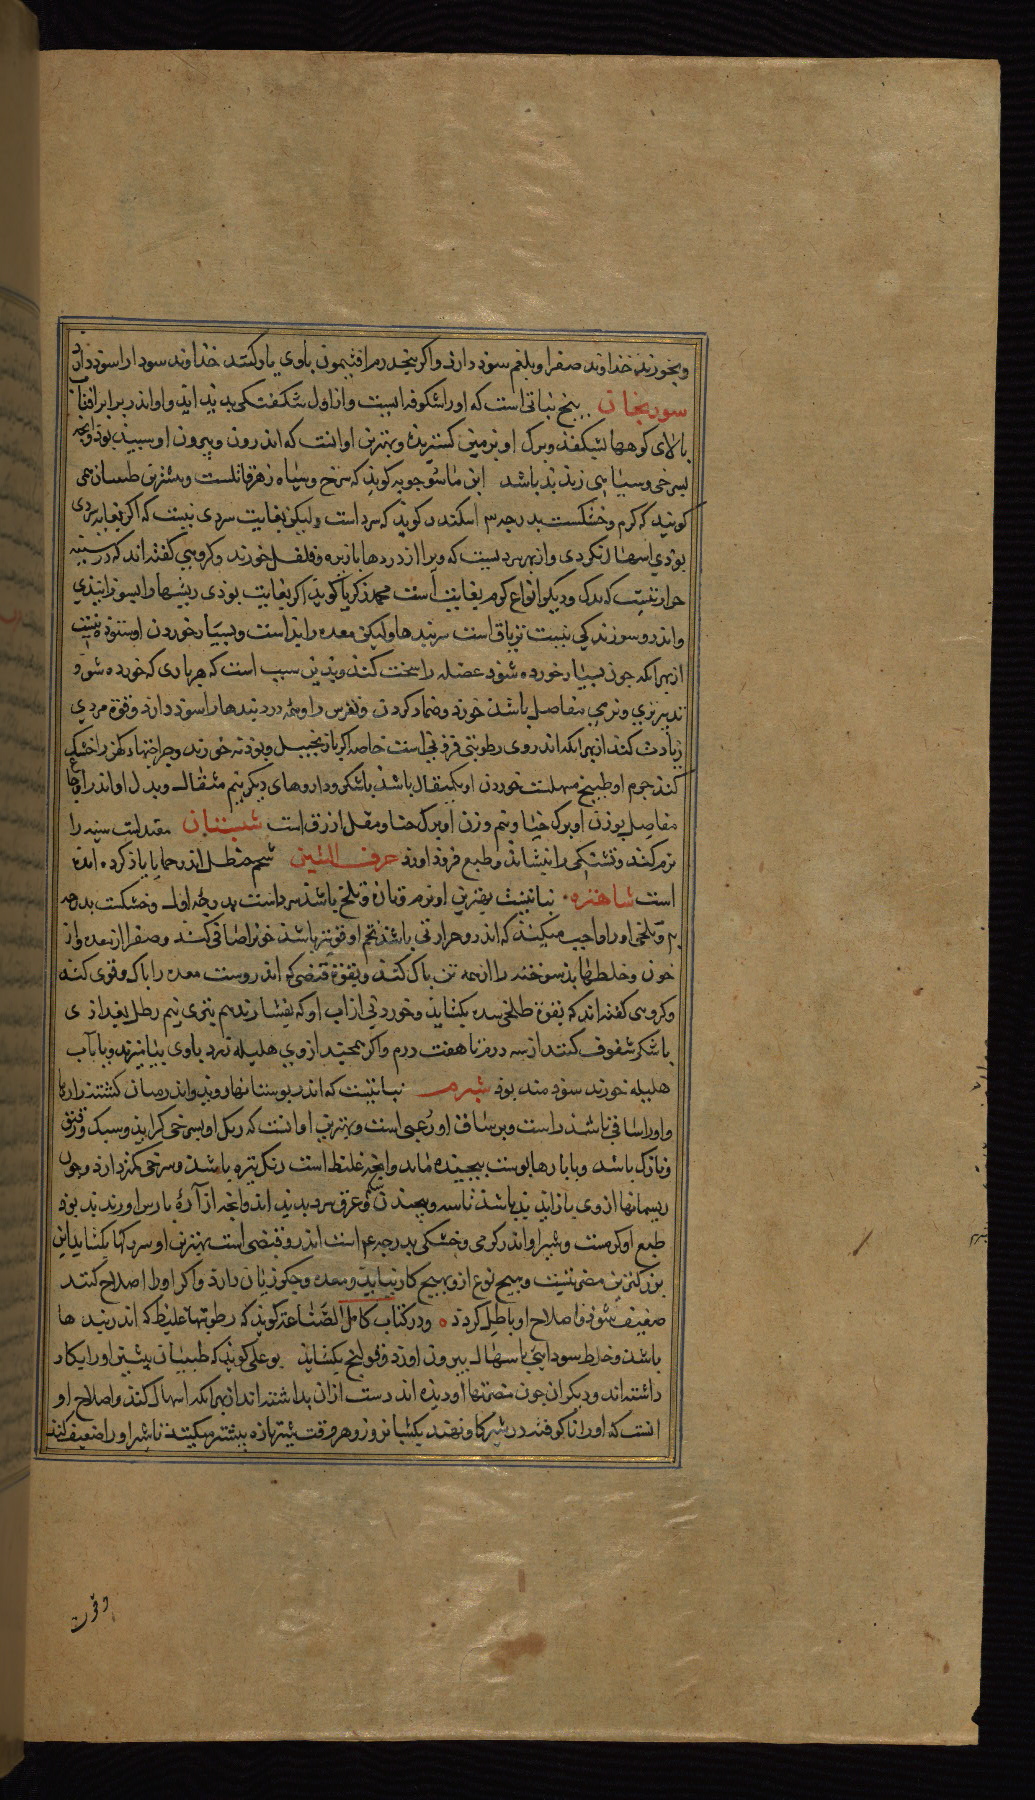 وبخورند خداوند صفرا وبلغم سود دارد واکر پنجدرم افتیمون باوی یاد کنند خداوند سودا را سود دارد
سورنجان بیخ نباتی است که اورا شکوفه ایست واز اول شکفتکی پدید اید واو اندر برابر افتاب
بالای کوهها بشکفد وبرک او بر زمین کسترده وبهترین او انست که اندرون وبیرون او سپید بود وانچه
بسرخی وسیاهی زند بد باشد ابن ماسویه کوید که سرخ وسیاه زهر قاتلست وبیشترین طبیبان می
کویند که کرم وخشکست بدرجه ۳ اسکندر کوید که سرد است ولیکن بغایت سردی نیست که اکر بغایه سردی
بودی اسهال نکردی واز بهر سردیست که ویرا از دردها بازیره وفلفل خورند وکروهی کفته اند که در
حرارتیست اندک ودیکر انواع کرم بغایت است محمد زکریا کوید اکر بغایت بودی ریشها را بسوزانیدی
واندرو سوزندکی نیست تریاق است سر بندها ولیکن معده را بد است وبسیار خوردن او ستوده نیست
از بهر انکه چون بسیار خورده شود عضله را سخت کند وبدین سبب است که هر باری که خورده شود
تدبیر نرمی مفاصل باشد خورد وضماد کردن ونقرس را وهمه درد بندها را سود دارد وقوة مردی
زیادت کند از بهر انکه اندر وی رطوبتی فزونی است خاصه اکر با زنجبیل وپودنه خورند وجراحتهاء کهن را خشک
کند جرم او وطبیخ مسهلست خوردن او یکمثقال باشد باشکر وداروهای دیکر نیم مثقال وبدل او اندر اوجاع
مفاصل بوزن او برک حنا ونیم وزن او برک حنا ومقل ازرق است شبستان معتدلست سینه را
نرم کند وتشنکی را بنشاند وطبع فرود اورد حرف الشین شحم حنظل اندر حا یاد کرده امده
است شاهتره نباتیست بهترین او نرم وتازه وتلخ باشد سرد است بدرجه اول وخشکست بدرجه
۲ وتلخی او را واجب میکند که اندرو حرارتی باشد تخم او قویتر باشد خونرا صافی کند وصفرا از معده واز
خون وخلطهاء بد سوخته را از همه تن پاک کند وبقوة قبضی که اندروست معده را پاک وقوی کند
وکروهی کفته اند که بقوة طلخی سده بکشاید وخوردنی از آب او که بفشارند هم بتری نیم رطل بغدادی
با شکر سفوف کنند از سه درم تا هفت درم واکر همچند از وی هلیله زرد باوی بیامیزند وبا آب
هلیله خورند سود مند بود شبرم نباتیست که اندر بوستانها روید واندر میان کشتزارها
واو را ساقی باشد راست وبر ساق او زغبی است وبهترین او انست که رنک او بسرخی کراید وسبک ورقیق
ونازک باشد وبا پارها پوست پیچیده ماند وانچه غلیظ است رنک تیره باشد وسرخی کمتر دارد وچون
ریسمانها از وی باز آید بد باشد تاسه وپیچیدن وعرق سرد پدید اید وانچه از آرهٔ پارس اورند بد بود
طبع او کرمست وشیر او اندر کرمی وخشکی بدرجه ۴ است اندرو قبضی است بهترین او سر رکها بکشاید این
بزرکترین مضرتیست وهیچ نوع از وهیچ کار نیاید ومعده وجکر زیان دارد واکر اورا اصلاح کنند
ضعیف شود واصلاح او باطل کردد ۰ ودر کتاب کامل الصناعة کوید که رطوبتهاء غلیظ که اندر بند ها
باشد وخلط سودایی باسهال بیرون اورد وقولنج بکشاید بو علی کوید که طبیبان پیشین اورا بکار
داشته اند ودیکران چون مضرتها او دیده اند دست ازان بداشته اند از بهر انکه اسهال کند واصلاح او
انست که اورا ناکوفته در شیر کاو نهند یکشبانروز وهر وقت شیر تازه بیشتر میکنند تا شر او را ضعیف کند
وقوت